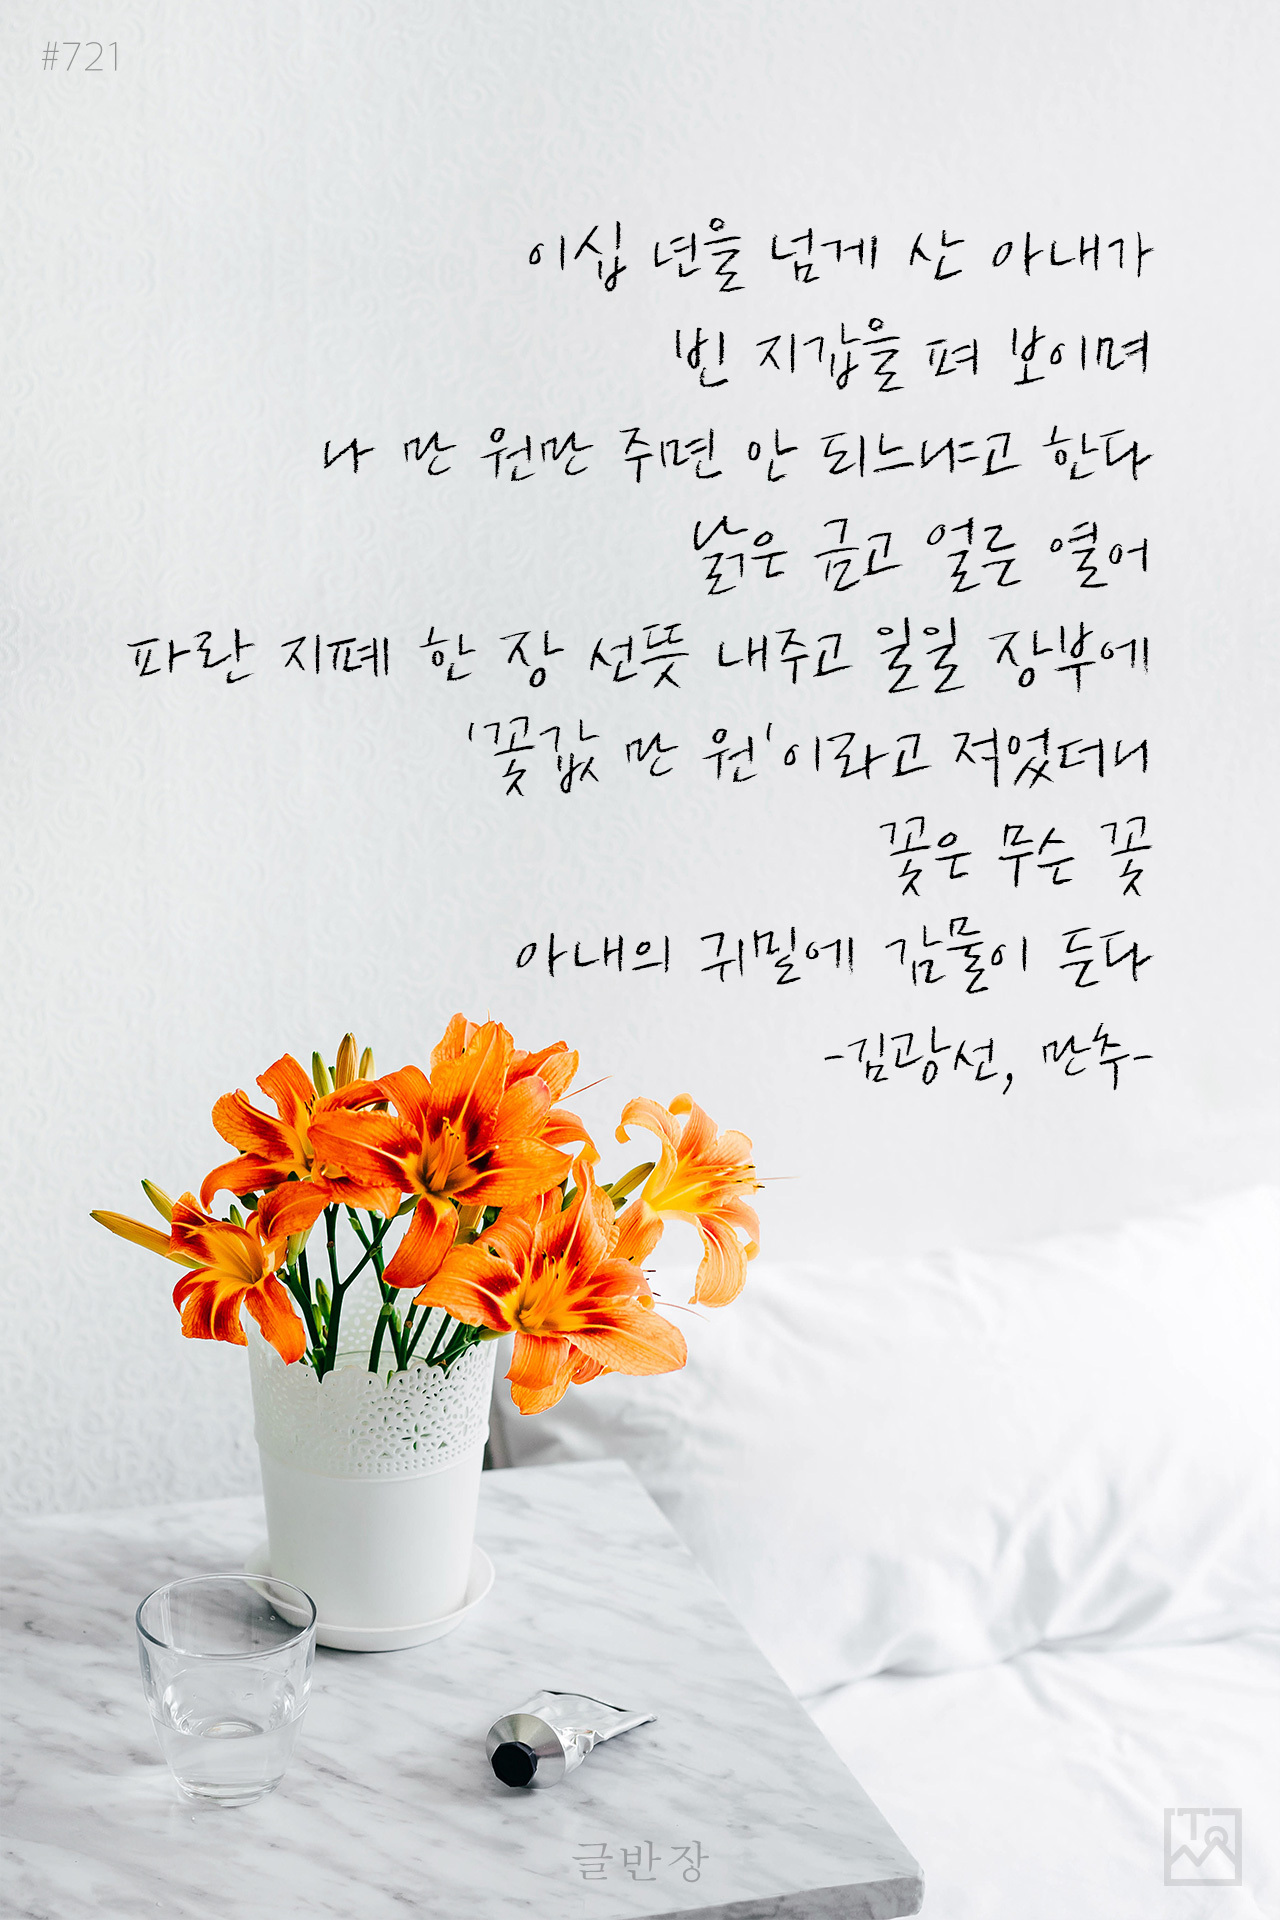 #721
이십 년을 넘게 산 아내가
빈 지갑을 펴 보이며
나 만 원만 주면 안 되느냐고 한다
낡은 금고 얼른 열어
파란 지폐 한 장 선뜻 내주고 일일 장부에
'꽃값 만 원'이라고 적었더니
꽃은 무슨 꽃
아내의 귀밑에 감물이 든다
-김광선, 만추-
글반장